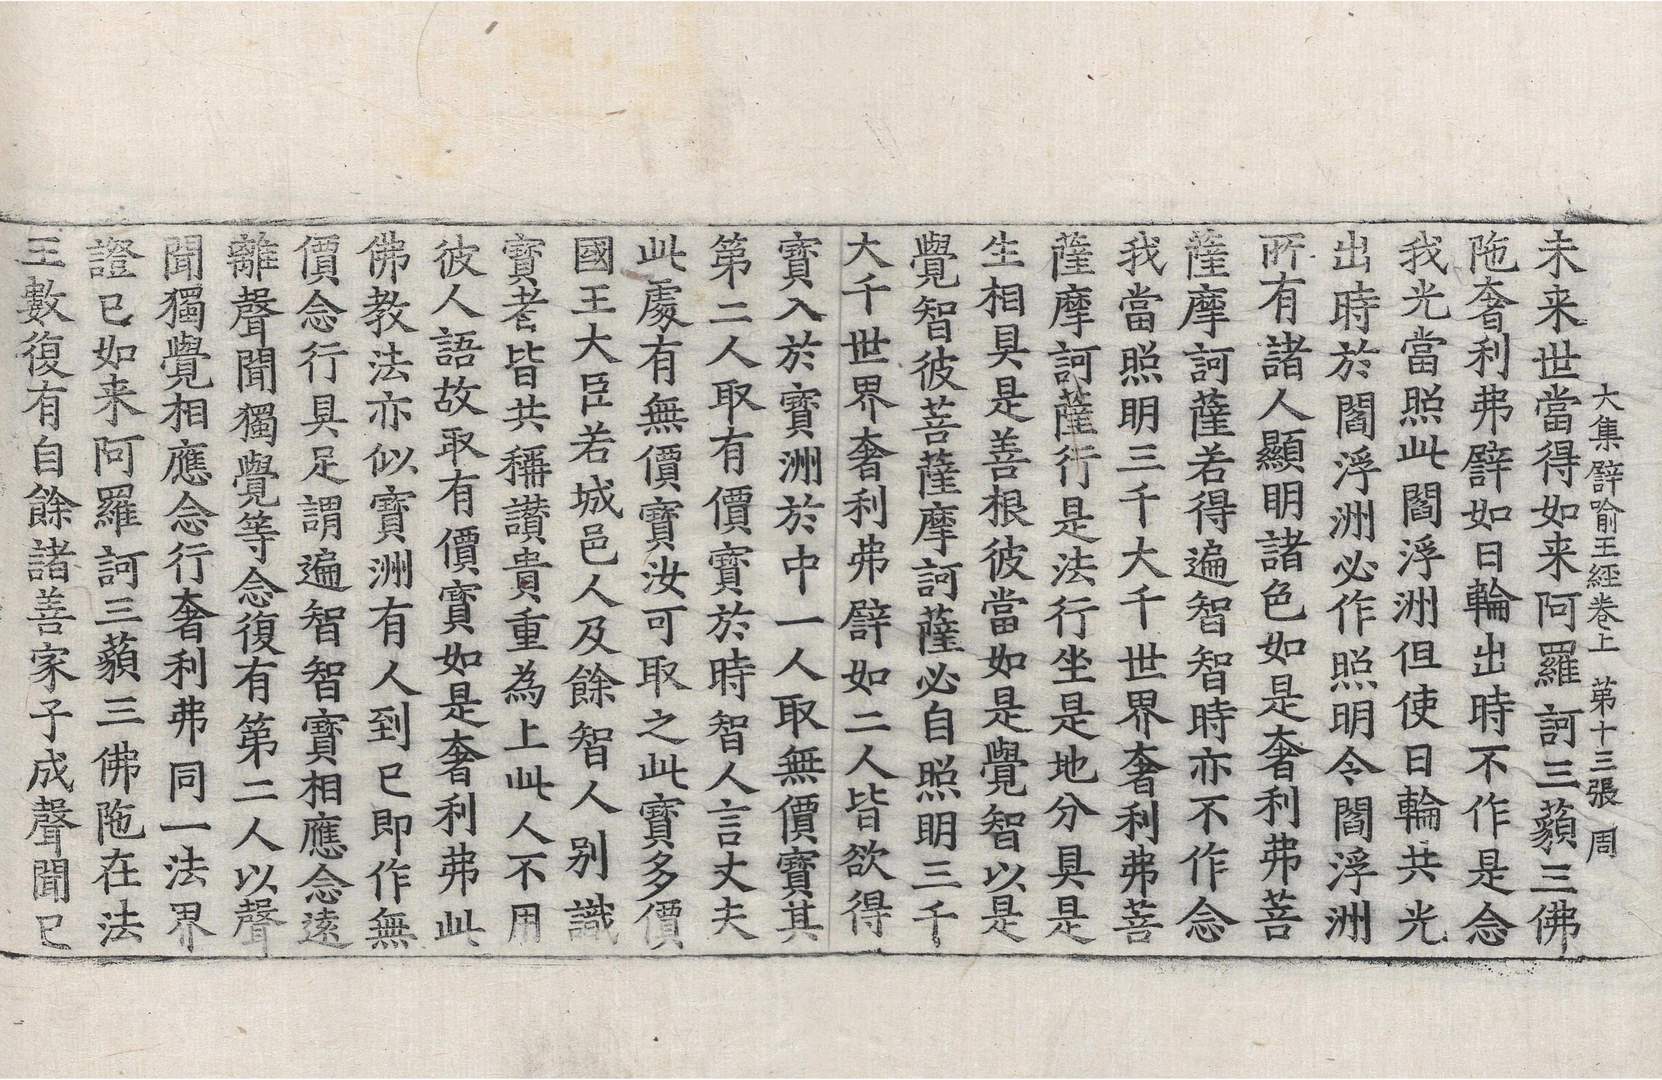 大集譬喻王經卷上 第十三張 周
未来世當得如来阿羅訶三藐三佛
陁奢利弗譬如日輪出時不作是念
我光當照此閻浮洲但使日輪共光
出時於閻浮洲必作照明令閻浮洲
所有諸人顯明諸色如是奢利弗菩
薩摩訶薩若得遍智智時亦不作念
我當照明三千大千世界奢利弗菩
薩摩訶薩行是法行坐是地分具是
生相具是善根彼當如是覺智以是
覺智彼菩薩摩訶薩必自照明三千
大千世界奢利弗譬如二人皆欲得
寶入於寶洲於中一人取無價寶其
第二人取有價寶於時智人言丈夫
此處有無價寶汝可取之此寶多價
國王大臣若城邑人及餘智人別識
寶者皆共稱讃貴重為上此人不用
彼人語故取有價寶如是奢利弗此
佛教法亦似寶洲有人到已即作無
價念行具足謂遍智智寶相應念遠
離聲聞獨覺等念復有第二人以聲
聞獨覺相應念行奢利弗同一法界
證已如来阿羅訶三藐三佛陁在法
王數復有自餘諸善家子成聲聞已